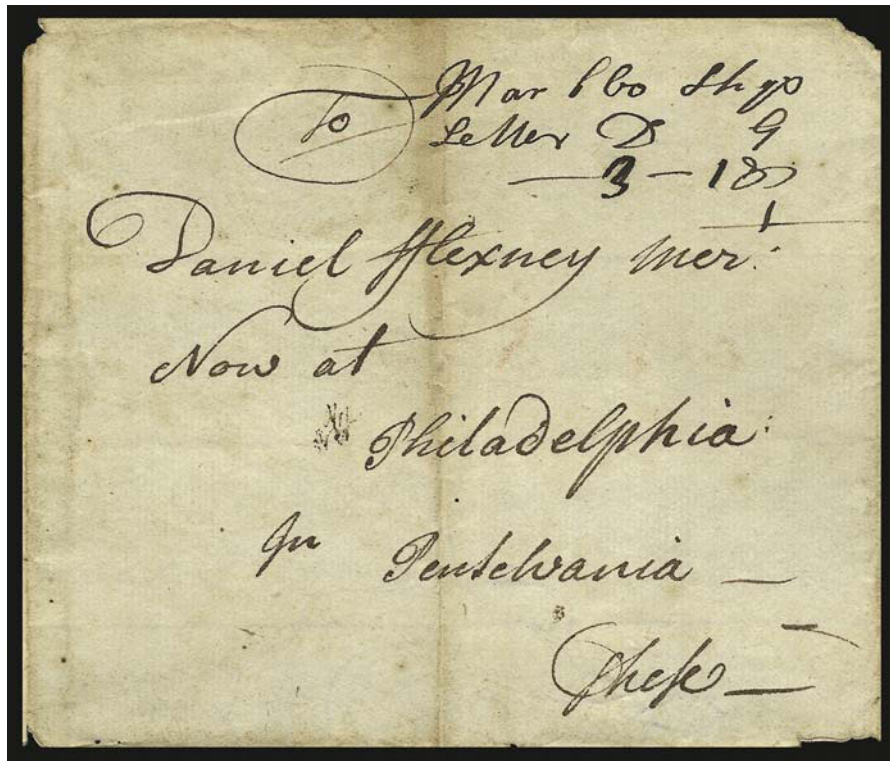 To
Mar bbo Shyo
Letter D G
3 - 18
Daniel fflexney Mert:
Now at
Philadelphia:
In Penselvania —
These —